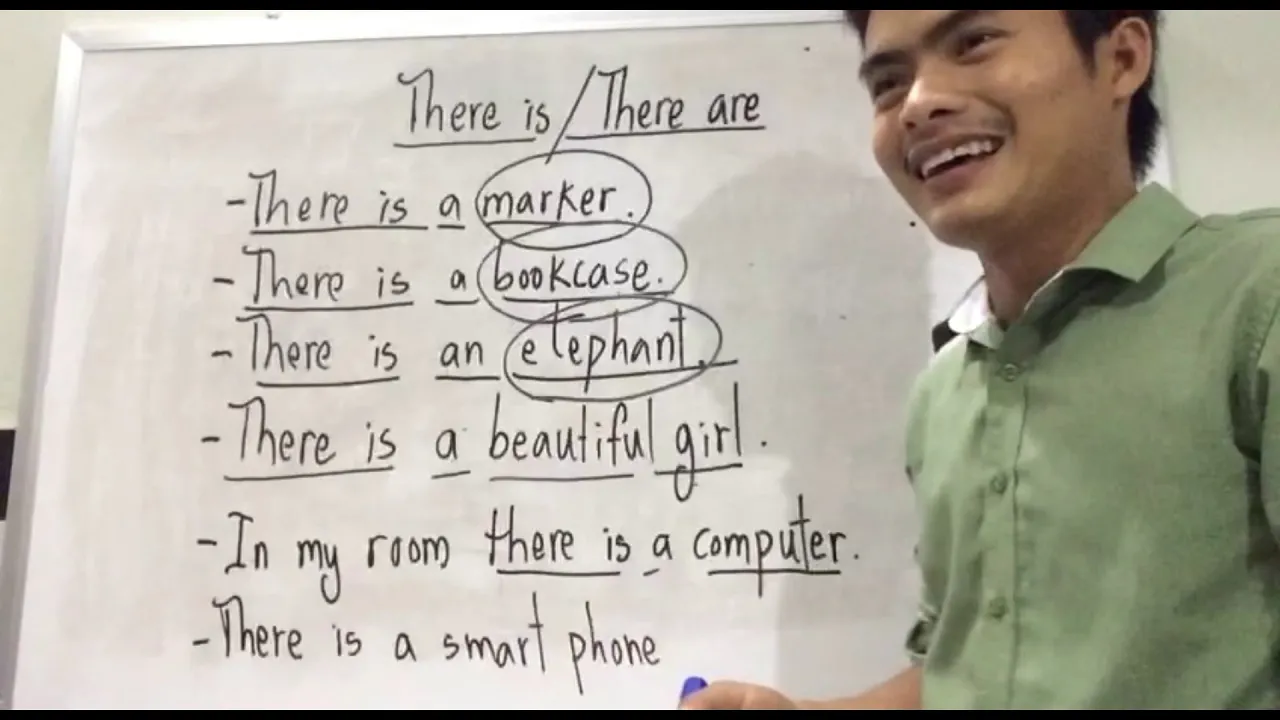 There is / There are
- There is a marker.
- There is a bookcase.
- There is an elephant.
- There is a beautiful girl.
- In my room there is a computer.
- There is a smart phone